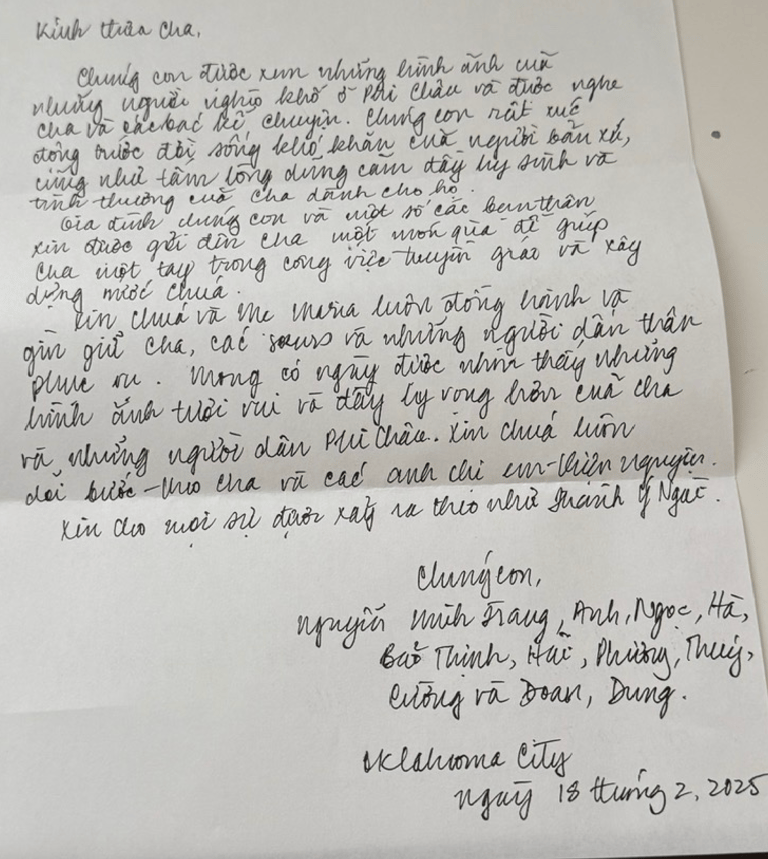 Kính thưa Cha,
Chúng con được xem những hình ảnh của
những người nghèo khổ ở Phi Châu và được nghe
cha và các bác kể chuyện. Chúng con rất xúc
động trước đời sống khó khăn của người bản xứ,
cũng như tấm lòng dũng cảm đầy hy sinh và
tình thương của Cha dành cho họ.
Gia đình chúng con và một số các bạn thân
xin được gửi đến cha một món quà để giúp
Cha một tay trong công việc truyền giáo và xây
dựng nước Chúa.
Xin Chúa và Mẹ Maria luôn đồng hành và
gìn giữ cha, các sœurs và những người dấn thân
phục vụ. Mong có ngày được nhìn thấy những
hình ảnh tươi vui và đầy hy vọng hơn của cha
và những người dân Phi Châu. Xin Chúa luôn
dõi bước theo cha và các anh chị em thiện nguyện.
Xin cho mọi sự được xảy ra theo như Thánh Ý Ngài.
Chúng con,
Nguyễn Minh Trang, Anh, Ngọc, Hà,
Bảo Thịnh, Huê, Phường, Thuý,
Cường và Đoan, Dung.
Oklahoma City
ngày 18 tháng 2, 2025